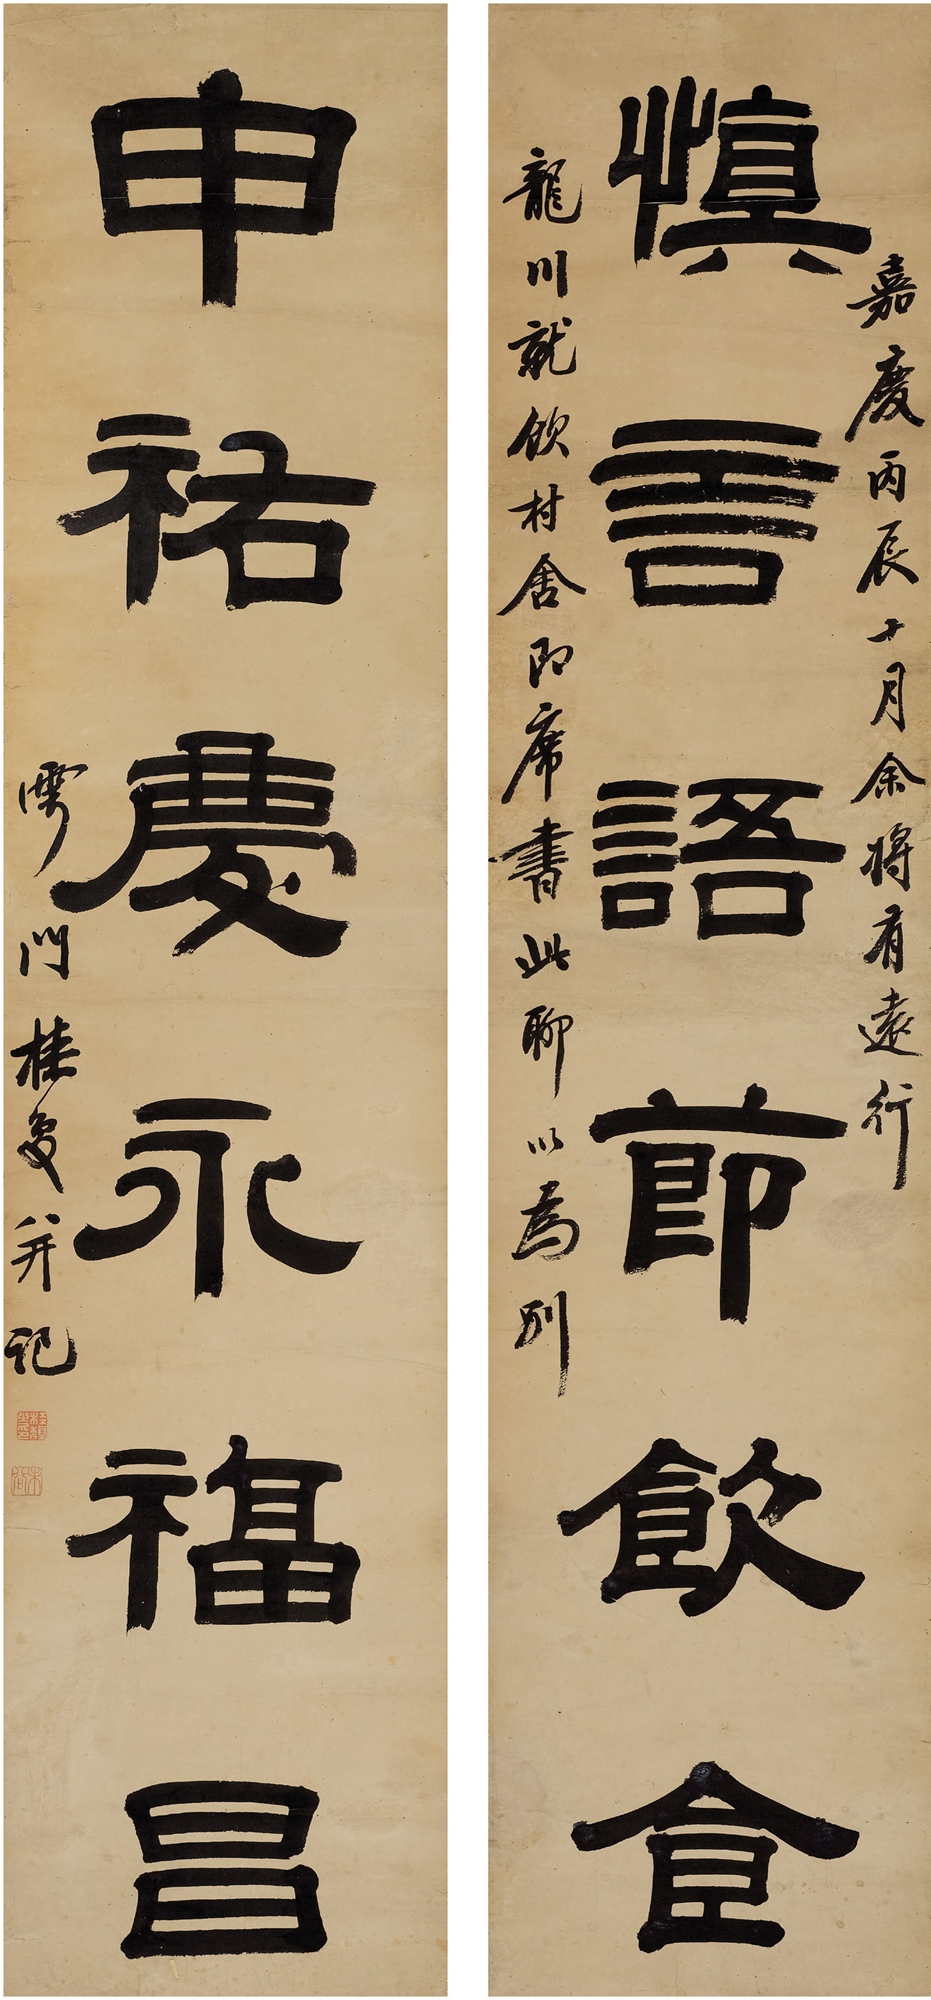 慎言語節飲食
嘉慶丙辰十月余將有遠行
龍川就飲村舍即席書此聊以為別
申祐慶永福昌
雩門桂馥并記